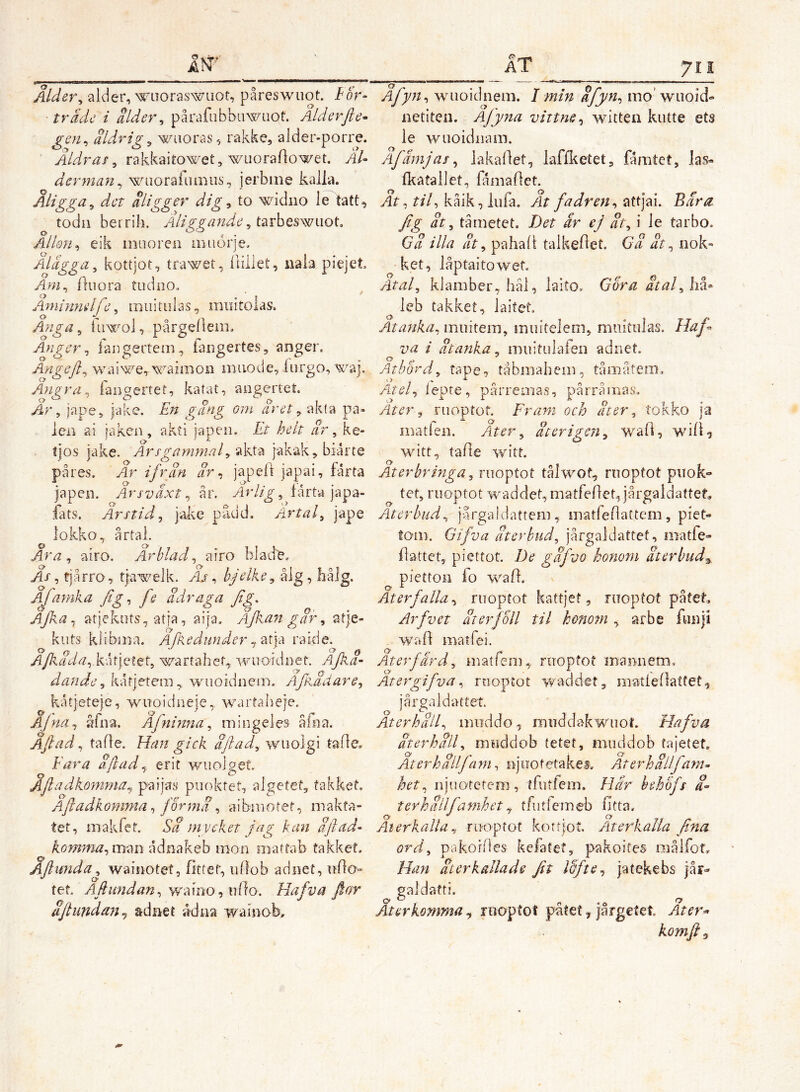 ÅN
Ålder, alder, wuoraswuot, påreswuot. För-
träde i ålder, pårafubbuwuot. Ålderſte-
gen, åldrig, wuoras, rakke, alder-porre.
Åldras, rakkaitowet, wuoraſtowet. Ål-
derman, wuoraſumus, jerbme kalla.
Åligga, det åligger dig, to widno le tatt,
todn berrih. Åliggande, tarbeswuot.
Ållon, eik muoren muörje.
Ålägga, kottjot, trawet, ſtillet, nala piejet.
Åm, ſtuora tudno.
Åminnelſe, muitulas, muitolas.
Ånga, ſuwol, pårgeſtem.
Ånger, ſangertem, ſangertes, anger.
Ångeſt, waiwe, waimon muode, ſurgo, waj.
Ångra, ſangertet, katat, angertet.
År, jape, jake. En gång om året, akta pa-
len ai jaken, akti japen. Et helt år, ke-
tjos jake. Årsgammal, akta jakak, biärte
påres. År ifrån år, japeſt japai, färta
japen. Årsväxt, år. Årlig, färta japa-
ſats. Årstid, jake pådd. Årtal, jape
lokko, årtal.
Åra, airo. Årblad, airo blade.
Ås, tjårro, tjawelk. Ås, bjelke, ålg, hålg.
Åſamka ſig, ſe ådraga ſig.
Åſka, atjekuts, atja, aija. Åſkan går, atje-
kuts klibma. Åſkedunder, atja raide.
Åſkåda, kåtjetet, wartahet, wuoidnet. Åſkå-
dande, kåtjetem, wuoidnem. Åſkådare,
kåtjeteje, wuoidneje, wartaheje.
Åſna, åſna. Åſninna, mingeles åſna.
Åſtad, taſte. Han gick åſtad, wuolgi taſte.
Fara åſtad, erit wuolget.
Åſtadkomma, paijas puoktet, algetet, takket.
Åſtadkomma, förmå, aibmotet, makta-
tet, makſet. Så mycket jag kan åſtad-
komma, man ådnakeb mon mattab takket.
Åſtunda, wainotet, ſittet, uſtob adnet, uſto-
tet. Åſtundan, waino, uſto. Hafva ſtor
åſtundan, adnet ådna wainob.
ÅT 711
Åſyn, wuoidnem. I min åſyn, mo wuoid-
netiten. Åſyna vittne, witten kutte ets
le wuoidnam.
Åſämjas, lakaſtet, laſſketet, ſåmtet, las-
ſkatallet, ſåmaſtet.
Åt, til, kåik, luſa. Åt fadren, attjai. Bära
ſig åt, tåmetet. Det är ej åt, i le tarbo.
Gå illa åt, pahaſt talkeſtet. Gå åt, nok-
ket, låptaitowet.
Åtal, klamber, hål, laito. Göra åtal, hå-
leb takket, laitet.
Åtanka, muitem, muitelem, muitulas. Haf-
va i åtanka, muitulaſen adnet.
Åtbörd, tape, tåbmahem, tåmåtem.
Åtel, ſepte, pårremas, pårråmas.
Åter, ruoptot. Fram och åter, tokko ja
matſen. Åter, återigen, waſt, wiſt,
witt, taſte witt.
Återbringa, ruoptot tålwot, ruoptot puok-
tet, ruoptot waddet, matſeſtet, jårgaldattet.
Återbud, jårgaldattem, matſeſtattem, piet-
tom. Gifva återbud, jårgaldattet, matſe-
ſtattet, piettot. De gåfvo honom återbud,
pietton ſo waſt.
Återfalla, ruoptot kattjet, ruoptot påtet.
Arfvet återföll til honom, arbe ſunji
waſt matſei.
Återfärd, matſem, ruoptot mannem.
Återgifva, ruoptot waddet, matſeſtattet,
jårgaldattet.
Återhåll, muddo, muddakwuot. Hafva
återhåll, muddob tetet, muddob tajetet.
Återhållſam, njuotetakes. Återhållſam-
het, njuotetem, tſutſem. Här behöfs å-
terhållſamhet, tſutſemeb ſitta.
Återkalla, ruoptot kottjot. Återkalla ſina
ord, pakoiſtes keſatet, pakoites målſot.
Han återkallade ſit löfte, jatekebs jår-
galdatti.
Återkomma, ruoptot påtet, jårgetet. Åter-
komſt,